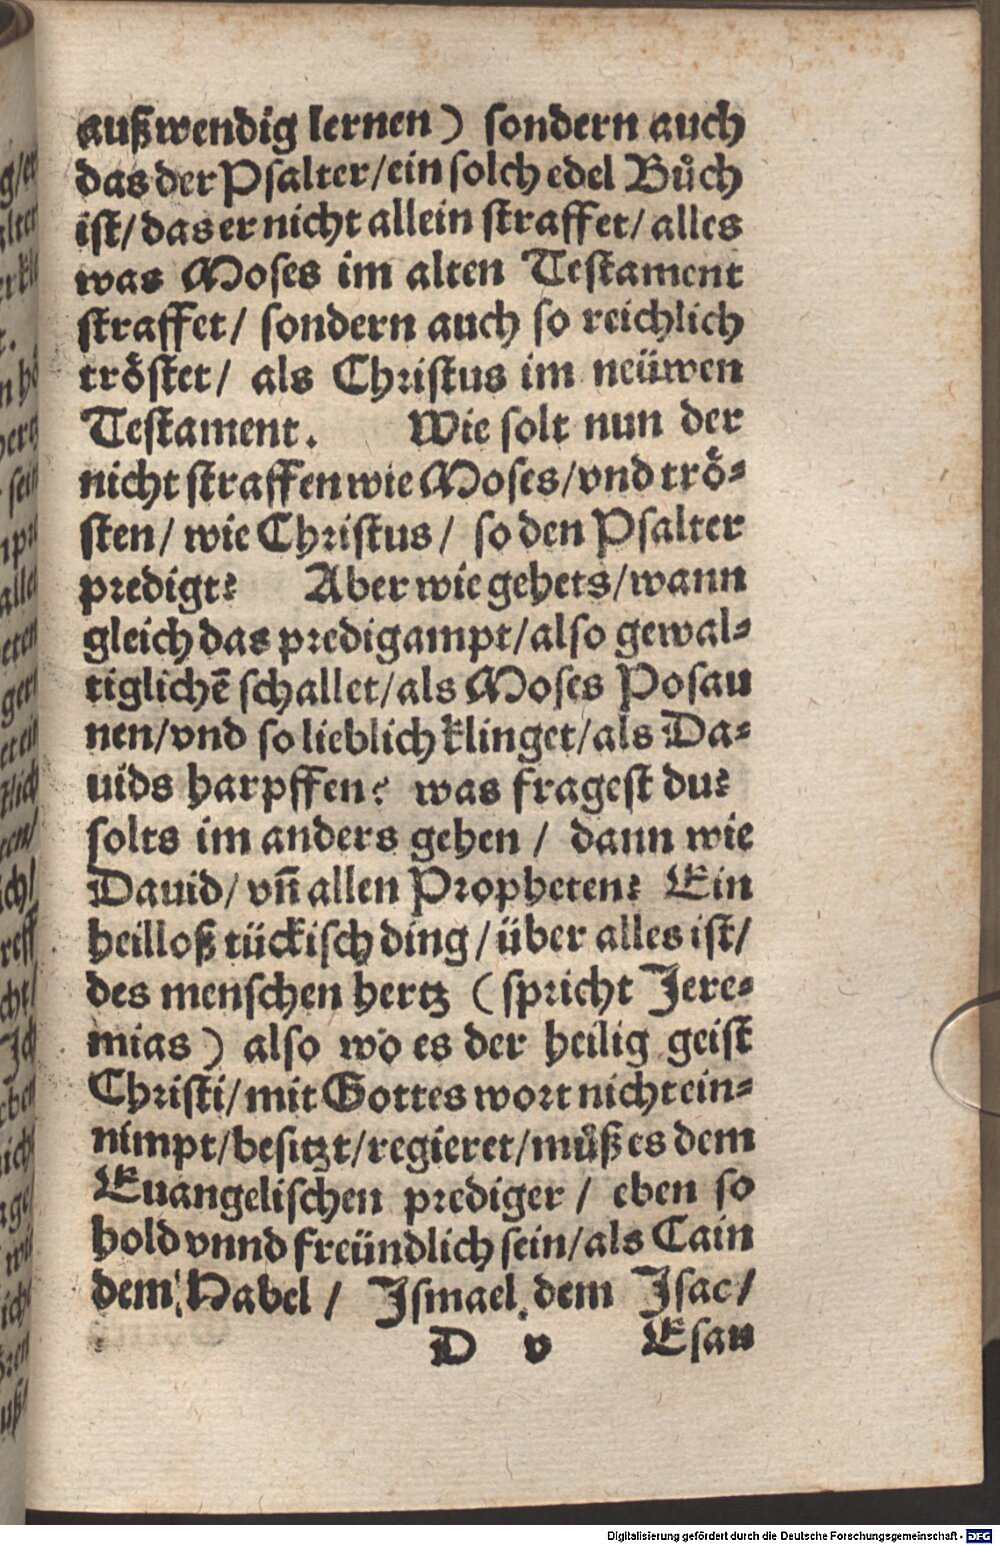 außwendig lernen) sondern auch
das der Psalter/ein solch edel Bůch
ist/das er nicht allein straffet/alles
was Moses im alten Testament
straffet/ sondern auch so reichlich
tröstet/ als Christus im neüwen
Testament. Wie solt nun der
nicht straffen wie Moses/vnd trö-
sten/ wie Christus/ so den Psalter
predigt? Aber wie gehets/wann
gleich das predigampt/also gewal-
tiglichē schallet/als Moses Posau
nen/vnd so lieblich klinget/als Da-
uids harpffen? was fragest du?
solts im anders gehen / dann wie
Dauid/ vñ allen Propheten? Ein
heilloß tückisch ding/über alles ist/
des menschen hertz (spricht Jere-
mias) also wo es der heilig geist
Christi/mit Gottes wort nicht ein-
nimpt/besitzt/regieret/můß es dem
Euangelischen prediger / eben so
hold vnnd freündlich sein/als Cain
dem Habel / Ismael dem Isac/
D v Esau
Digitalisierung gefördert durch die Deutsche Forschungsgemeinschaft - DFG